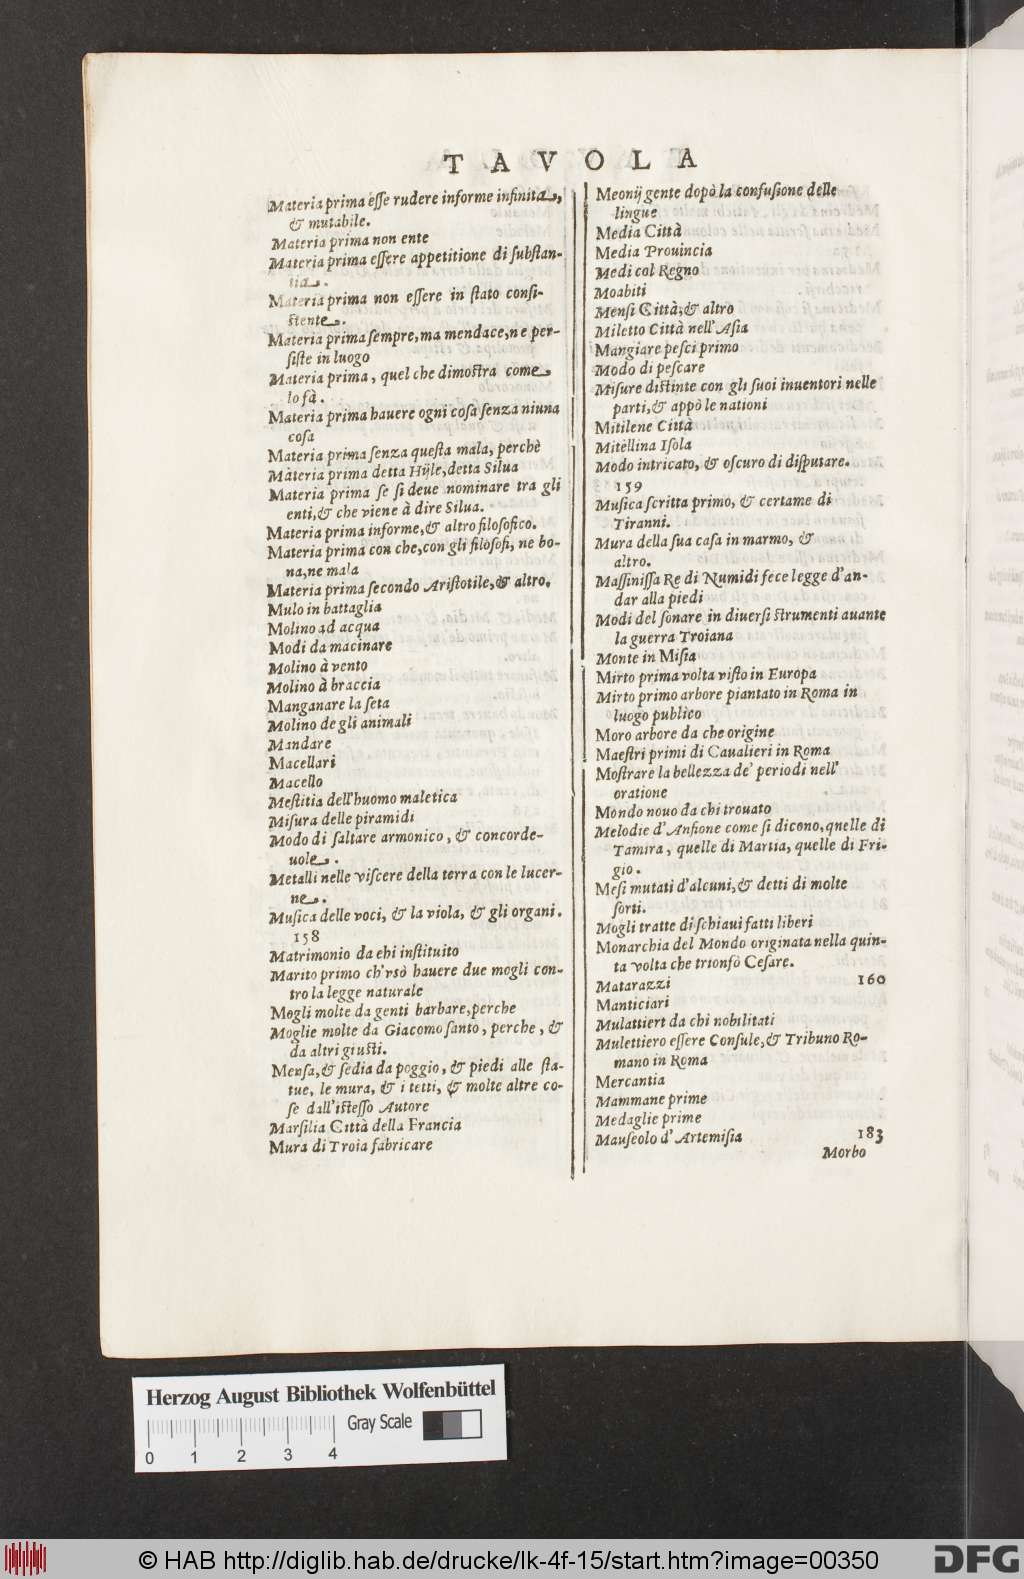 TAVOLA
Materia prima esse rudere informe infinita,
& mutabile.
Materia prima non ente
Materia prima essere appetitione di substan-
tia.
Materia prima non essere in stato consi-
stente.
Materia prima sempre, ma mendace, ne per-
siste in luogo
Materia prima, quel che dimostra come
lo fà.
Materia prima hauere ogni cosa senza niuna
cosa
Materia prima senza questa mala, perchè
Materia prima detta Hÿle, detta Silua
Materia prima se si deue nominare tra gli
enti, & che viene à dire Silua.
Materia prima informe, & altro filosofico.
Materia prima con che, con gli filosofi, ne bo-
na, ne mala
Materia prima secondo Aristotile, & altro.
Mulo in battaglia
Molino ad acqua
Modi da macinare
Molino à vento
Molino à braccia
Manganare la seta
Molino de gli animali
Mandare
Macellari
Macello
Mestitia dell'huomo maletica
Misura delle piramidi
Modo di saltare armonico, & concorde-
uole.
Metalli nelle viscere della terra con le lucer-
ne.
Musica delle voci, & la viola, & gli organi.
158
Matrimonio da chi instituito
Marito primo ch'vsò hauere due mogli con-
tro la legge naturale
Mogli molte da genti barbare, perche
Moglie molte da Giacomo santo, perche, &
da altri giusti.
Mensa, & sedia da poggio, & piedi alle sta-
tue, le mura, & i tetti, & molte altre co-
se dall'istesso Autore
Marsilia Città della Francia
Mura di Troia fabricare
Meonij gente dopò la confusione delle
lingue
Media Città
Media Prouincia
Medi col Regno
Moabiti
Mensi Città, & altro
Miletto Città nell'Asia
Mangiare pesci primo
Modo di pescare
Misure distinte con gli suoi inuentori nelle
parti, & appò le nationi
Mitilene Città
Mitellina Isola
Modo intricato, & oscuro di disputare.
159
Musica scritta primo, & certame di
Tiranni.
Mura della sua casa in marmo, &
altro.
Massinissa Re di Numidi fece legge d'an-
dar alla piedi
Modi del sonare in diuersi strumenti auante
la guerra Troiana
Monte in Misia
Mirto prima volta visto in Europa
Mirto primo arbore piantato in Roma in
luogo publico
Moro arbore da che origine
Maestri primi di Caualieri in Roma
Mostrare la bellezza de' periodi nell'
oratione
Mondo nouo da chi trouato
Melodie d'Ansione come si dicono, quelle di
Tamira, quelle di Martia, quelle di Fri-
gio.
Mesi mutati d'alcuni, & detti di molte
sorti.
Mogli tratte di schiaui fatti liberi
Monarchia del Mondo originata nella quin-
ta volta che trionfò Cesare.
Matarazzi 160
Manticiari
Mulattieri da chi nobilitati
Mulettiero essere Consule, & Tribuno Ro-
mano in Roma
Mercantia
Mammane prime
Medaglie prime
Mauseolo d'Artemisia 183
Morbo
Herzog August Bibliothek Wolfenbüttel
Gray Scale
0 1 2 3 4
© HAB http://diglib.hab.de/drucke/lk-4f-15/start.htm?image=00350
DFG